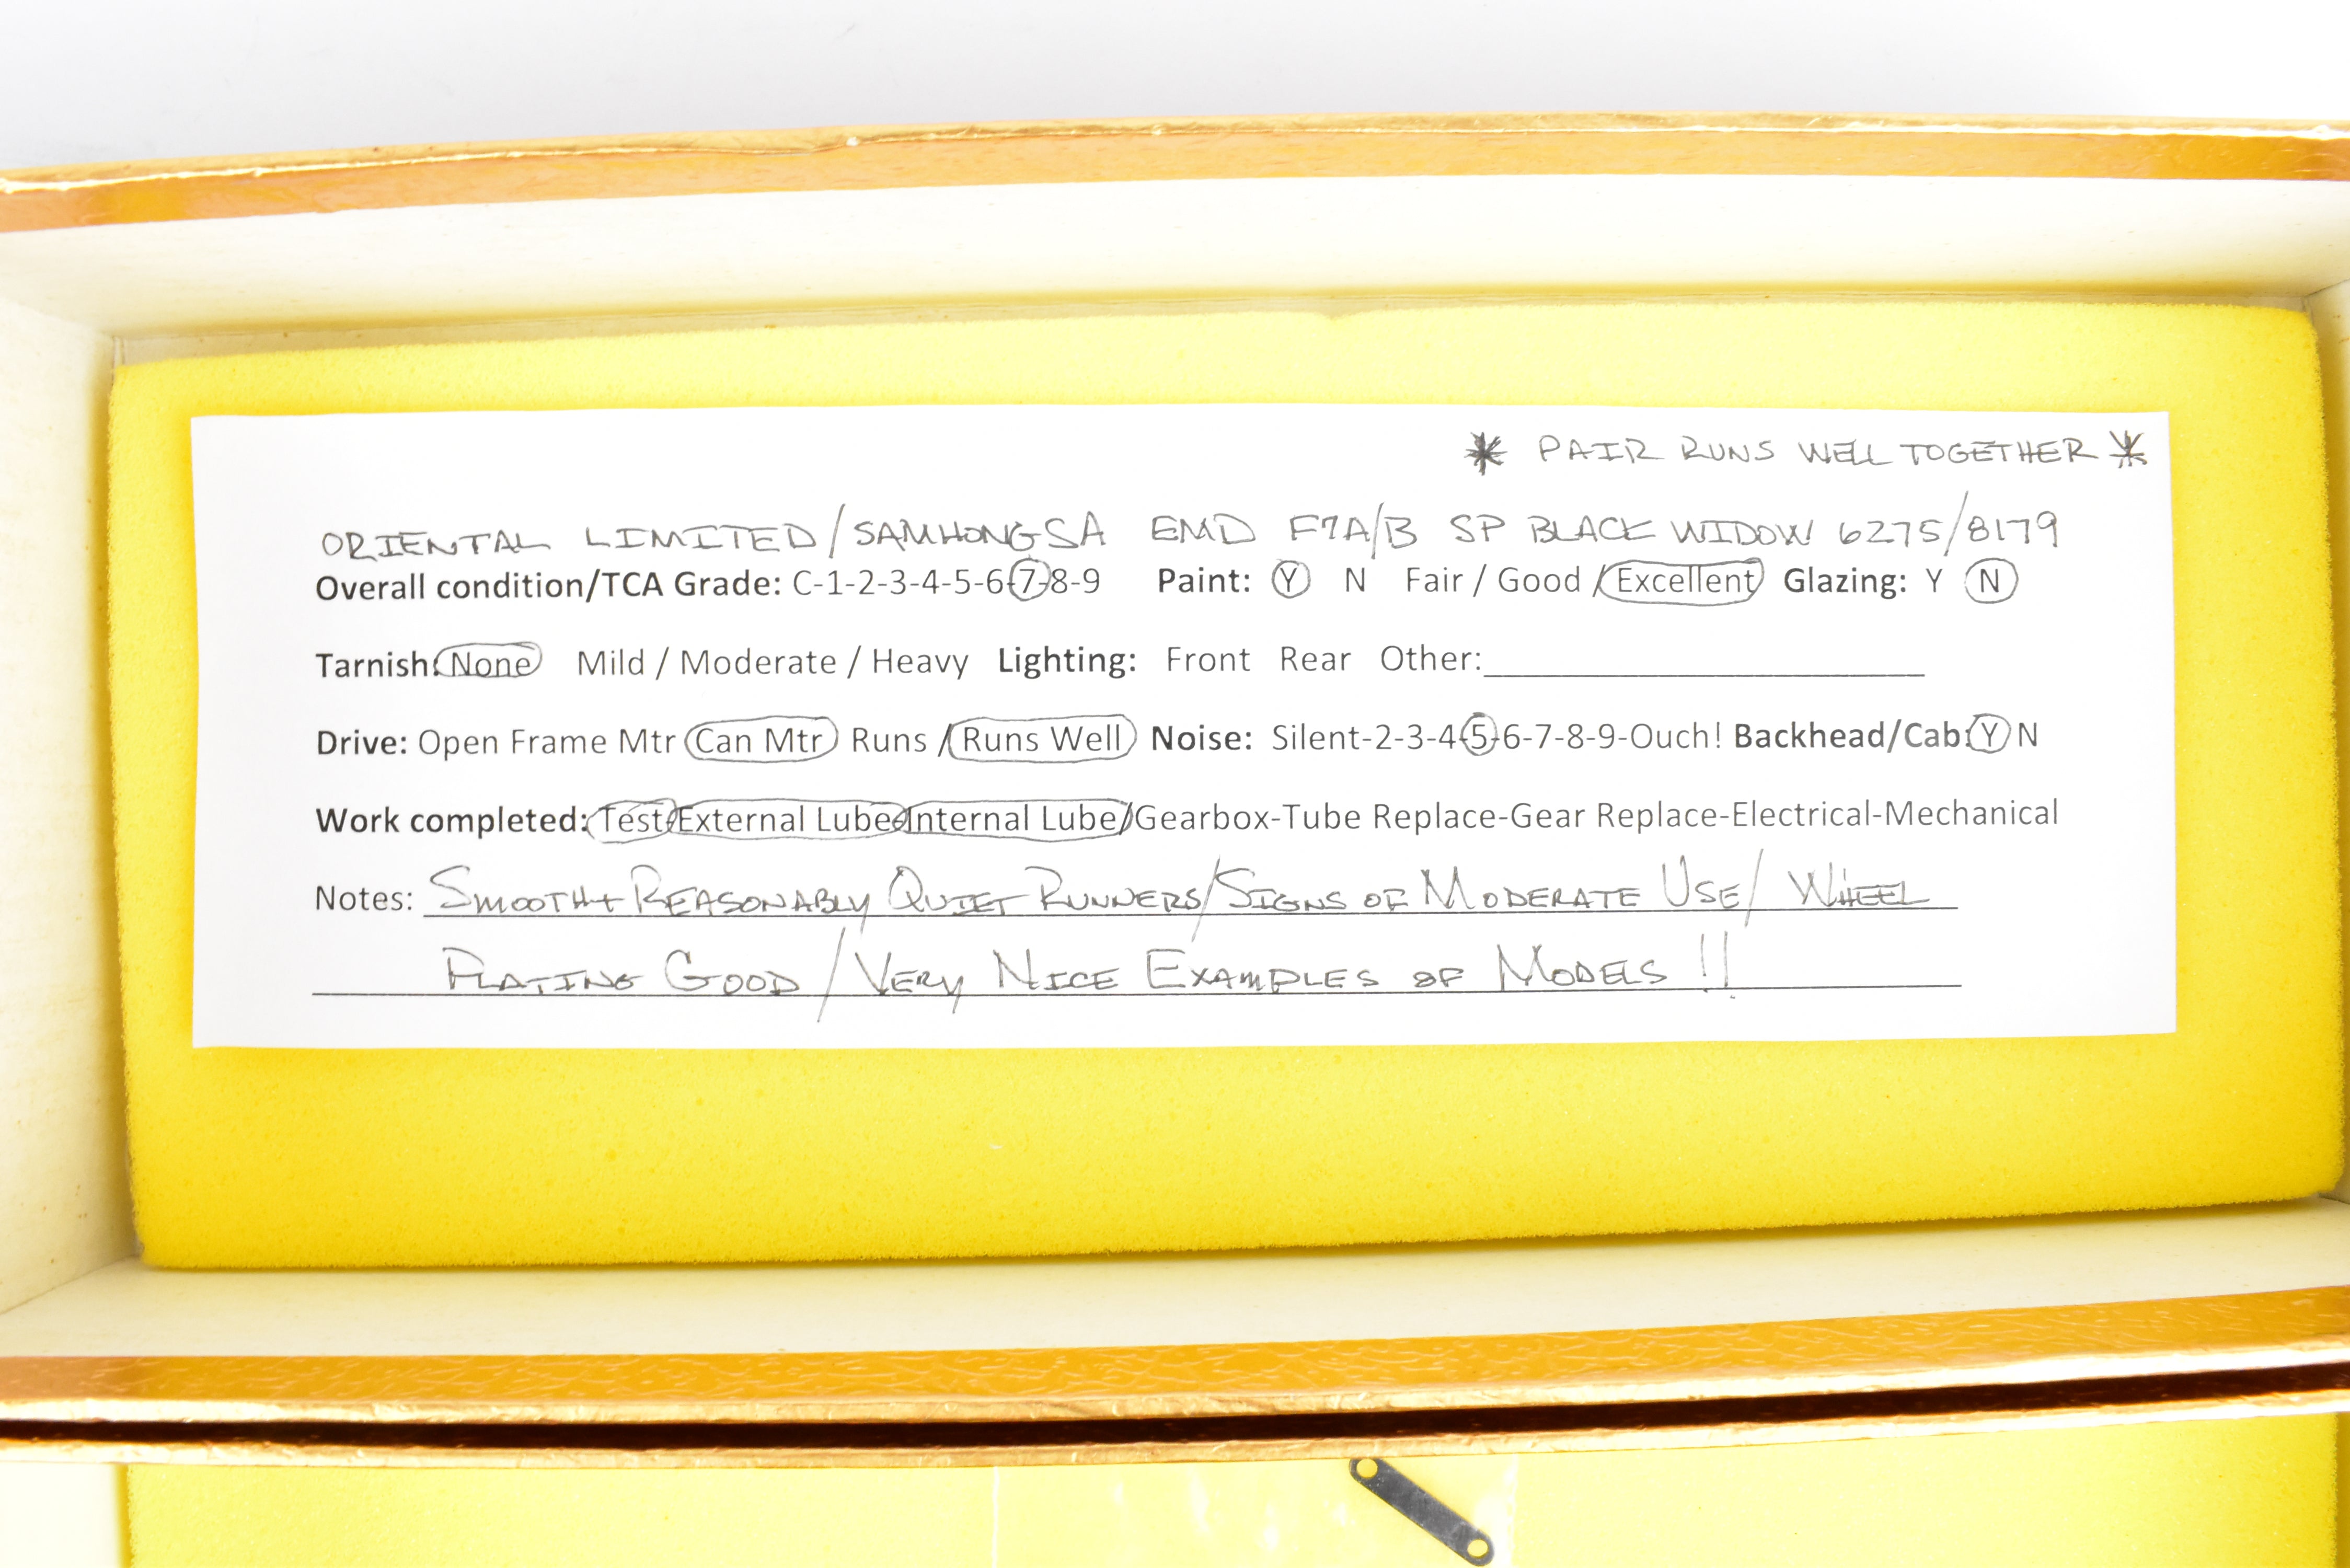 * PAIR RUNS WELL TOGETHER *
ORIENTAL LIMITED/SAMHONGSA EMD F7A/B SP BLACK WIDOW 6275/8179
Overall condition/TCA Grade: C-1-2-3-4-5-6-7-8-9 Paint: Y N Fair / Good / Excellent Glazing: Y N
Tarnish: None Mild / Moderate / Heavy Lighting: Front Rear Other:____________________
Drive: Open Frame Mtr Can Mtr Runs / Runs Well Noise: Silent-2-3-4-5-6-7-8-9-Ouch! Backhead/Cab: Y N
Work completed: Test/External Lube-Internal Lube/Gearbox-Tube Replace-Gear Replace-Electrical-Mechanical
Notes: SMOOTH + REASONABLY QUIET RUNNERS/SIGNS OF MODERATE USE/ WHEEL
PLATING GOOD/VERY NICE EXAMPLES OF MODELS !!